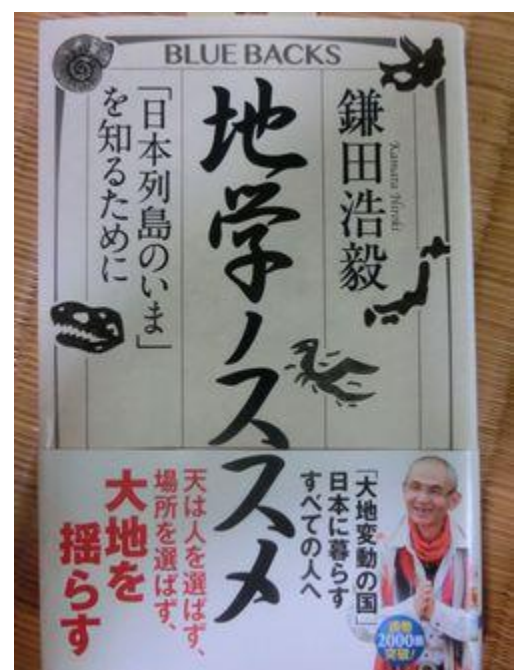 BLUE BACKS
鎌田浩毅
Kamata Hiroki
地学ノススメ
「日本列島のいま」
を知るために
「大地変動の国」
日本に暮らす
すべての人へ
天は人を選ばず、
場所を選ばず、
大地を
揺らす
2000
突破!